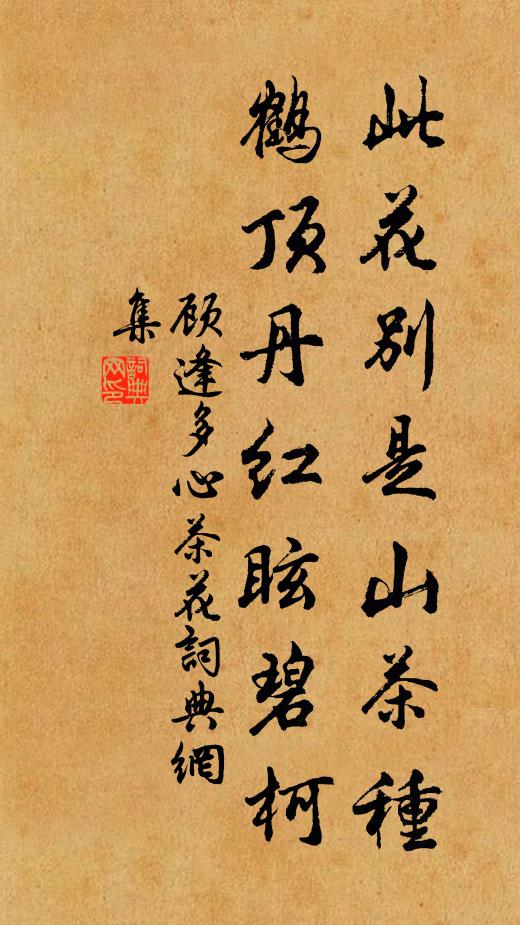 此花别是山茶種
鹤顶丹红眩碧柯
顾逢多心茶花詞典網
集
詞典
网印